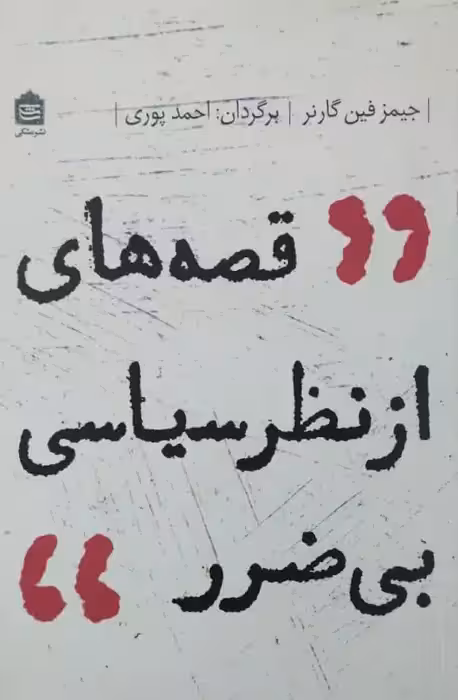 | جیمز فین گارنر | برگردان: احمد پوری |
نشر مشکی
” قصه‌های
از نظر سیاسی
بی‌ضرر “